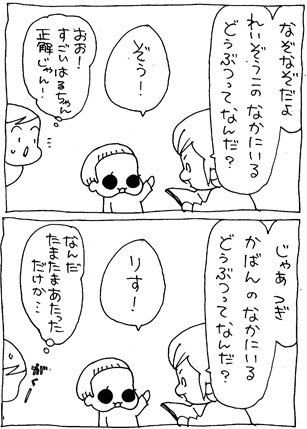 なぞなぞだよ
れいぞうこの なかにいる
どうぶつって なんだ？
ぞう！
おお！
すごいはるちゃん
正解じゃん！
じゃあ つぎ
かばんの なかにいる
どうぶつって なんだ？
りす！
なんだ
たまたまあたった
だけか…